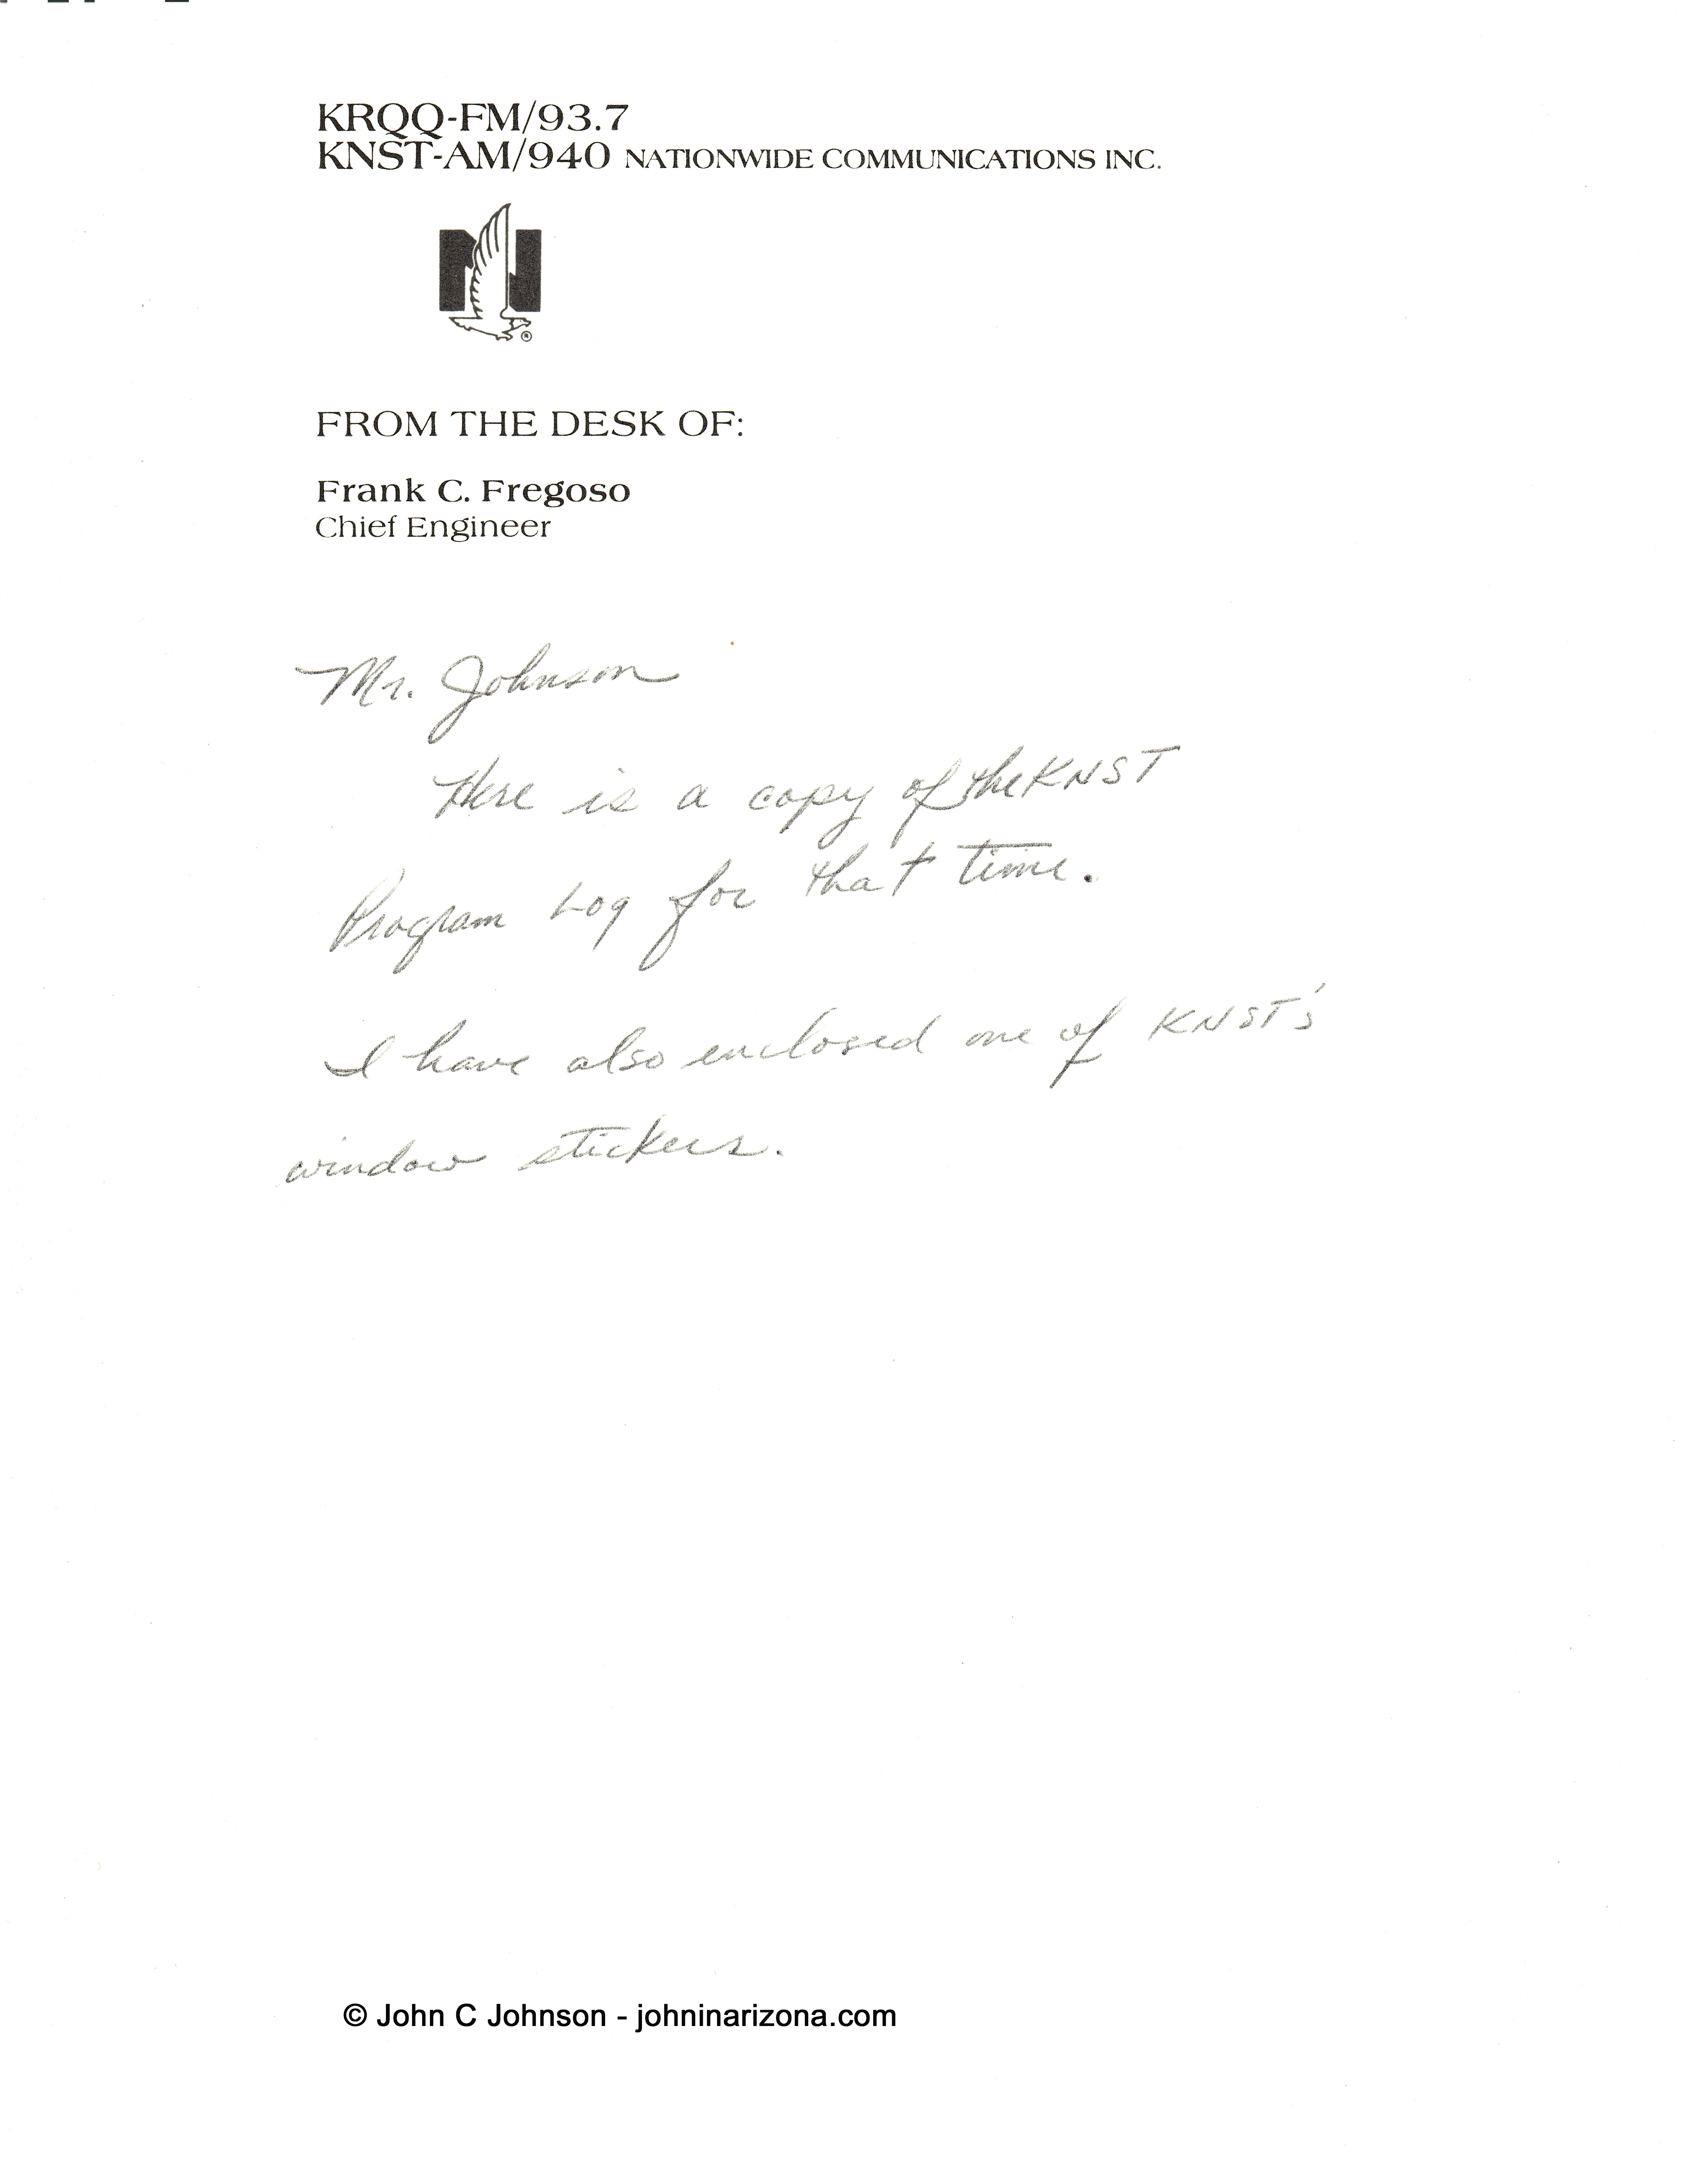 KRQQ-FM/93.7
KNST-AM/940 NATIONWIDE COMMUNICATIONS INC.
N
®
FROM THE DESK OF:
Frank C. Fregoso
Chief Engineer
Mr. Johnson
Here is a copy of the KNST
Program Log for that time.
I have also enclosed one of KNST's
window stickers.
© John C Johnson - johninarizona.com